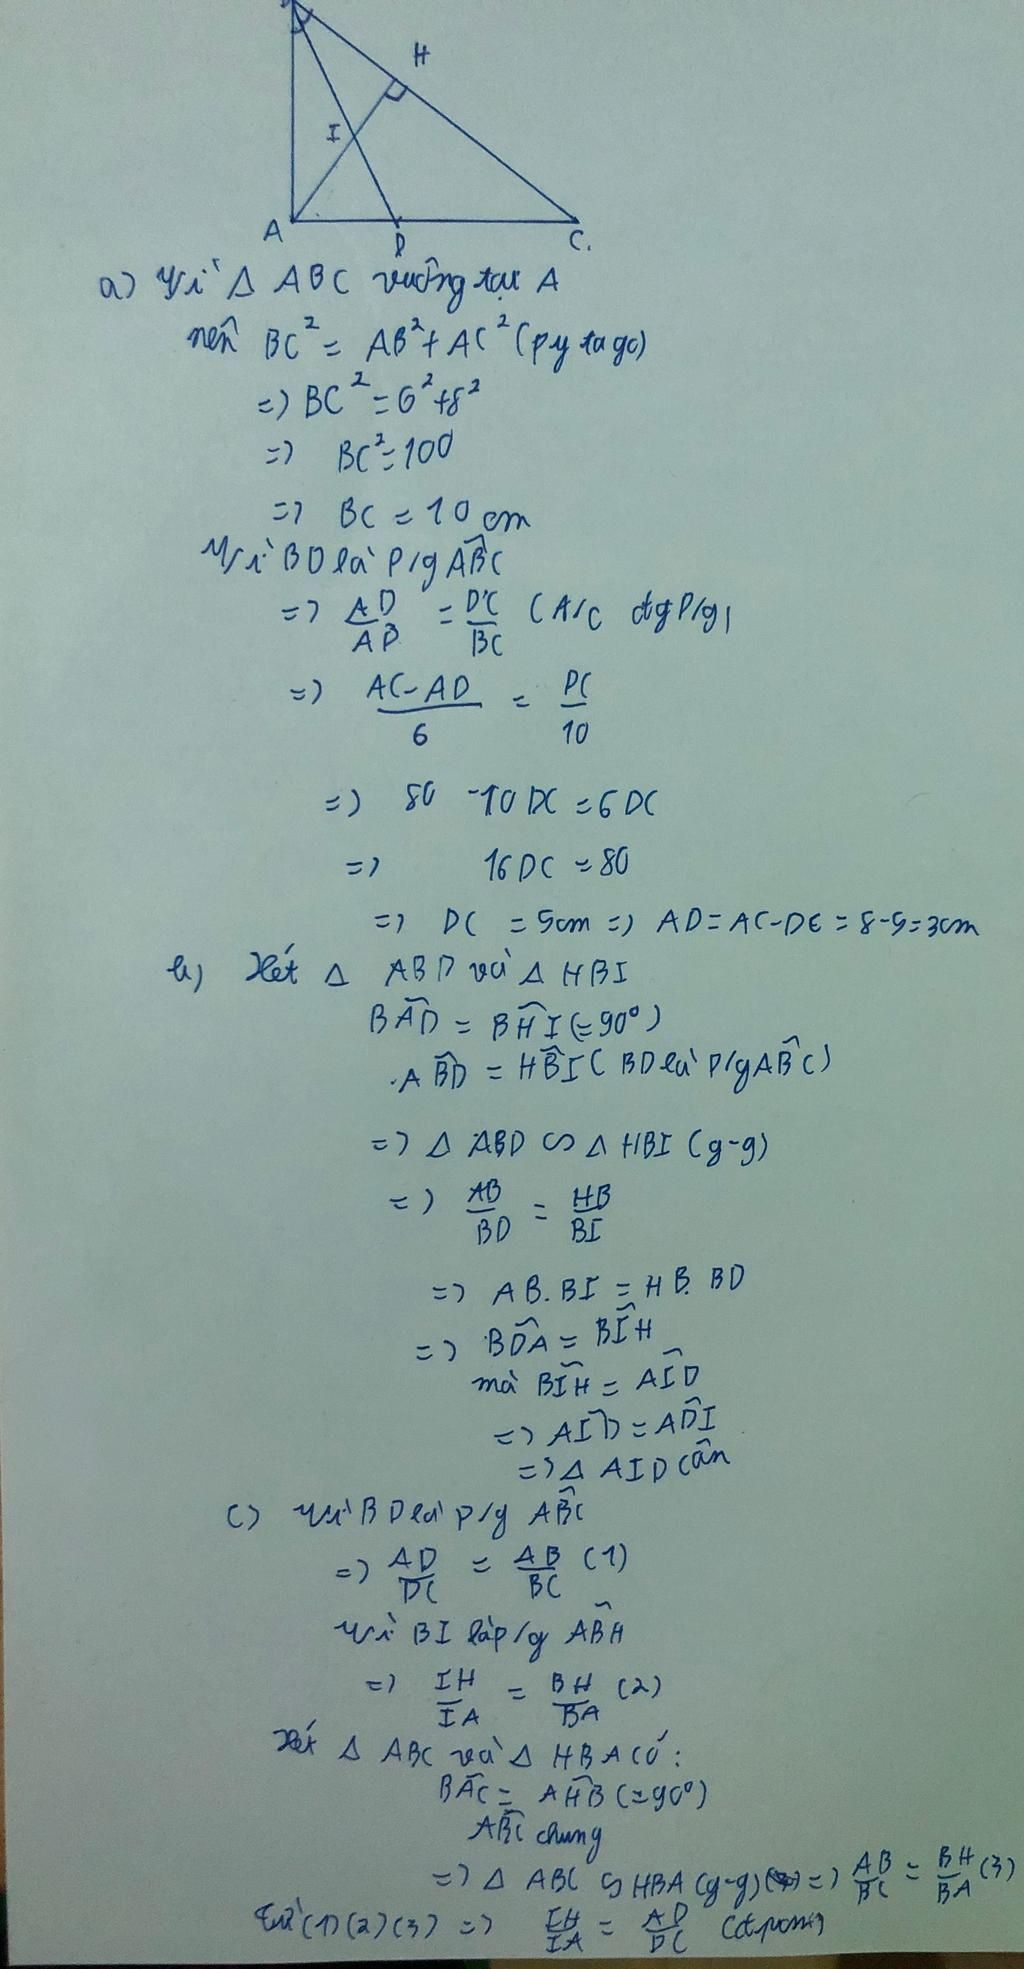 H
I
A
D
C.
a) Vì Δ ABC vuông tại A
nên BC² = AB² + AC² (py ta go)
=> BC² = 6² + 8²
=> BC² = 100
=> BC = 10 cm
Vì BD là p/g ABC
=> AD/AB = DC/BC (t/c đg p/g)
=> AC - AD/6 = DC/10
=> 80 - 10DC = 6DC
=> 16DC = 80
=> DC = 5cm => AD = AC - DC = 8 - 5 = 3cm
b) Xét Δ ABD và Δ HBI
BAD = BHI (= 90°)
ABD = HBI ( BD là p/g ABC)
=> Δ ABD ∽ Δ HBI (g-g)
=> AB/BD = HB/BI
=> AB. BI = HB. BD
=> BDA = BIH
mà BIH = AID
=> AID = ADI
=> Δ AID cân
c) Vì BD là p/g ABC
=> AD/DC = AB/BC (1)
Vì BI là p/g ABH
=> IH/IA = BH/BA (2)
Xét Δ ABC và Δ HBA có:
BAC = AHB (= 90°)
ABC chung
=> Δ ABC ∽ HBA (g-g) => AB/BC = BH/BA (3)
Từ (1) (2) (3) => IH/IA = AD/DC (đpcm)